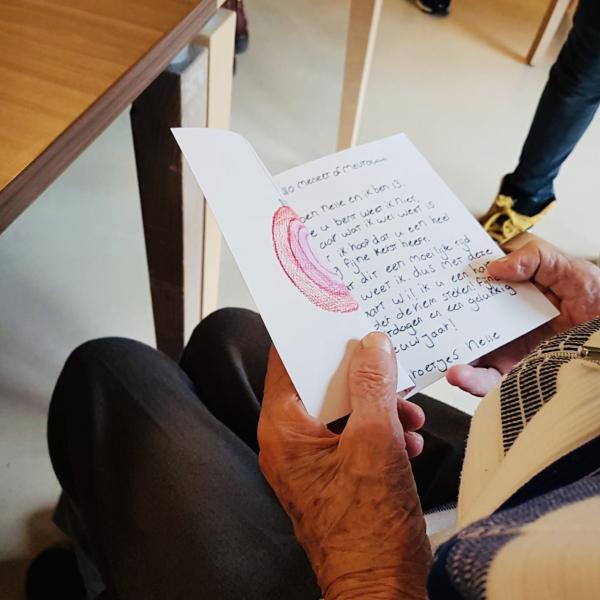 llo meneer of mevrouw
ben nelle en ik ben 13.
e u bent weet ik niet,
aar wat ik wel weet is
t ik hoop dat u een heel
fijne kerst heeft.
t dit een moeilijke tijd
weet ik. dus met deze
aart wil ik u een
det de riem steken! fijne
stdagen en een gelukkig
euwjaar!
roetjes nelle